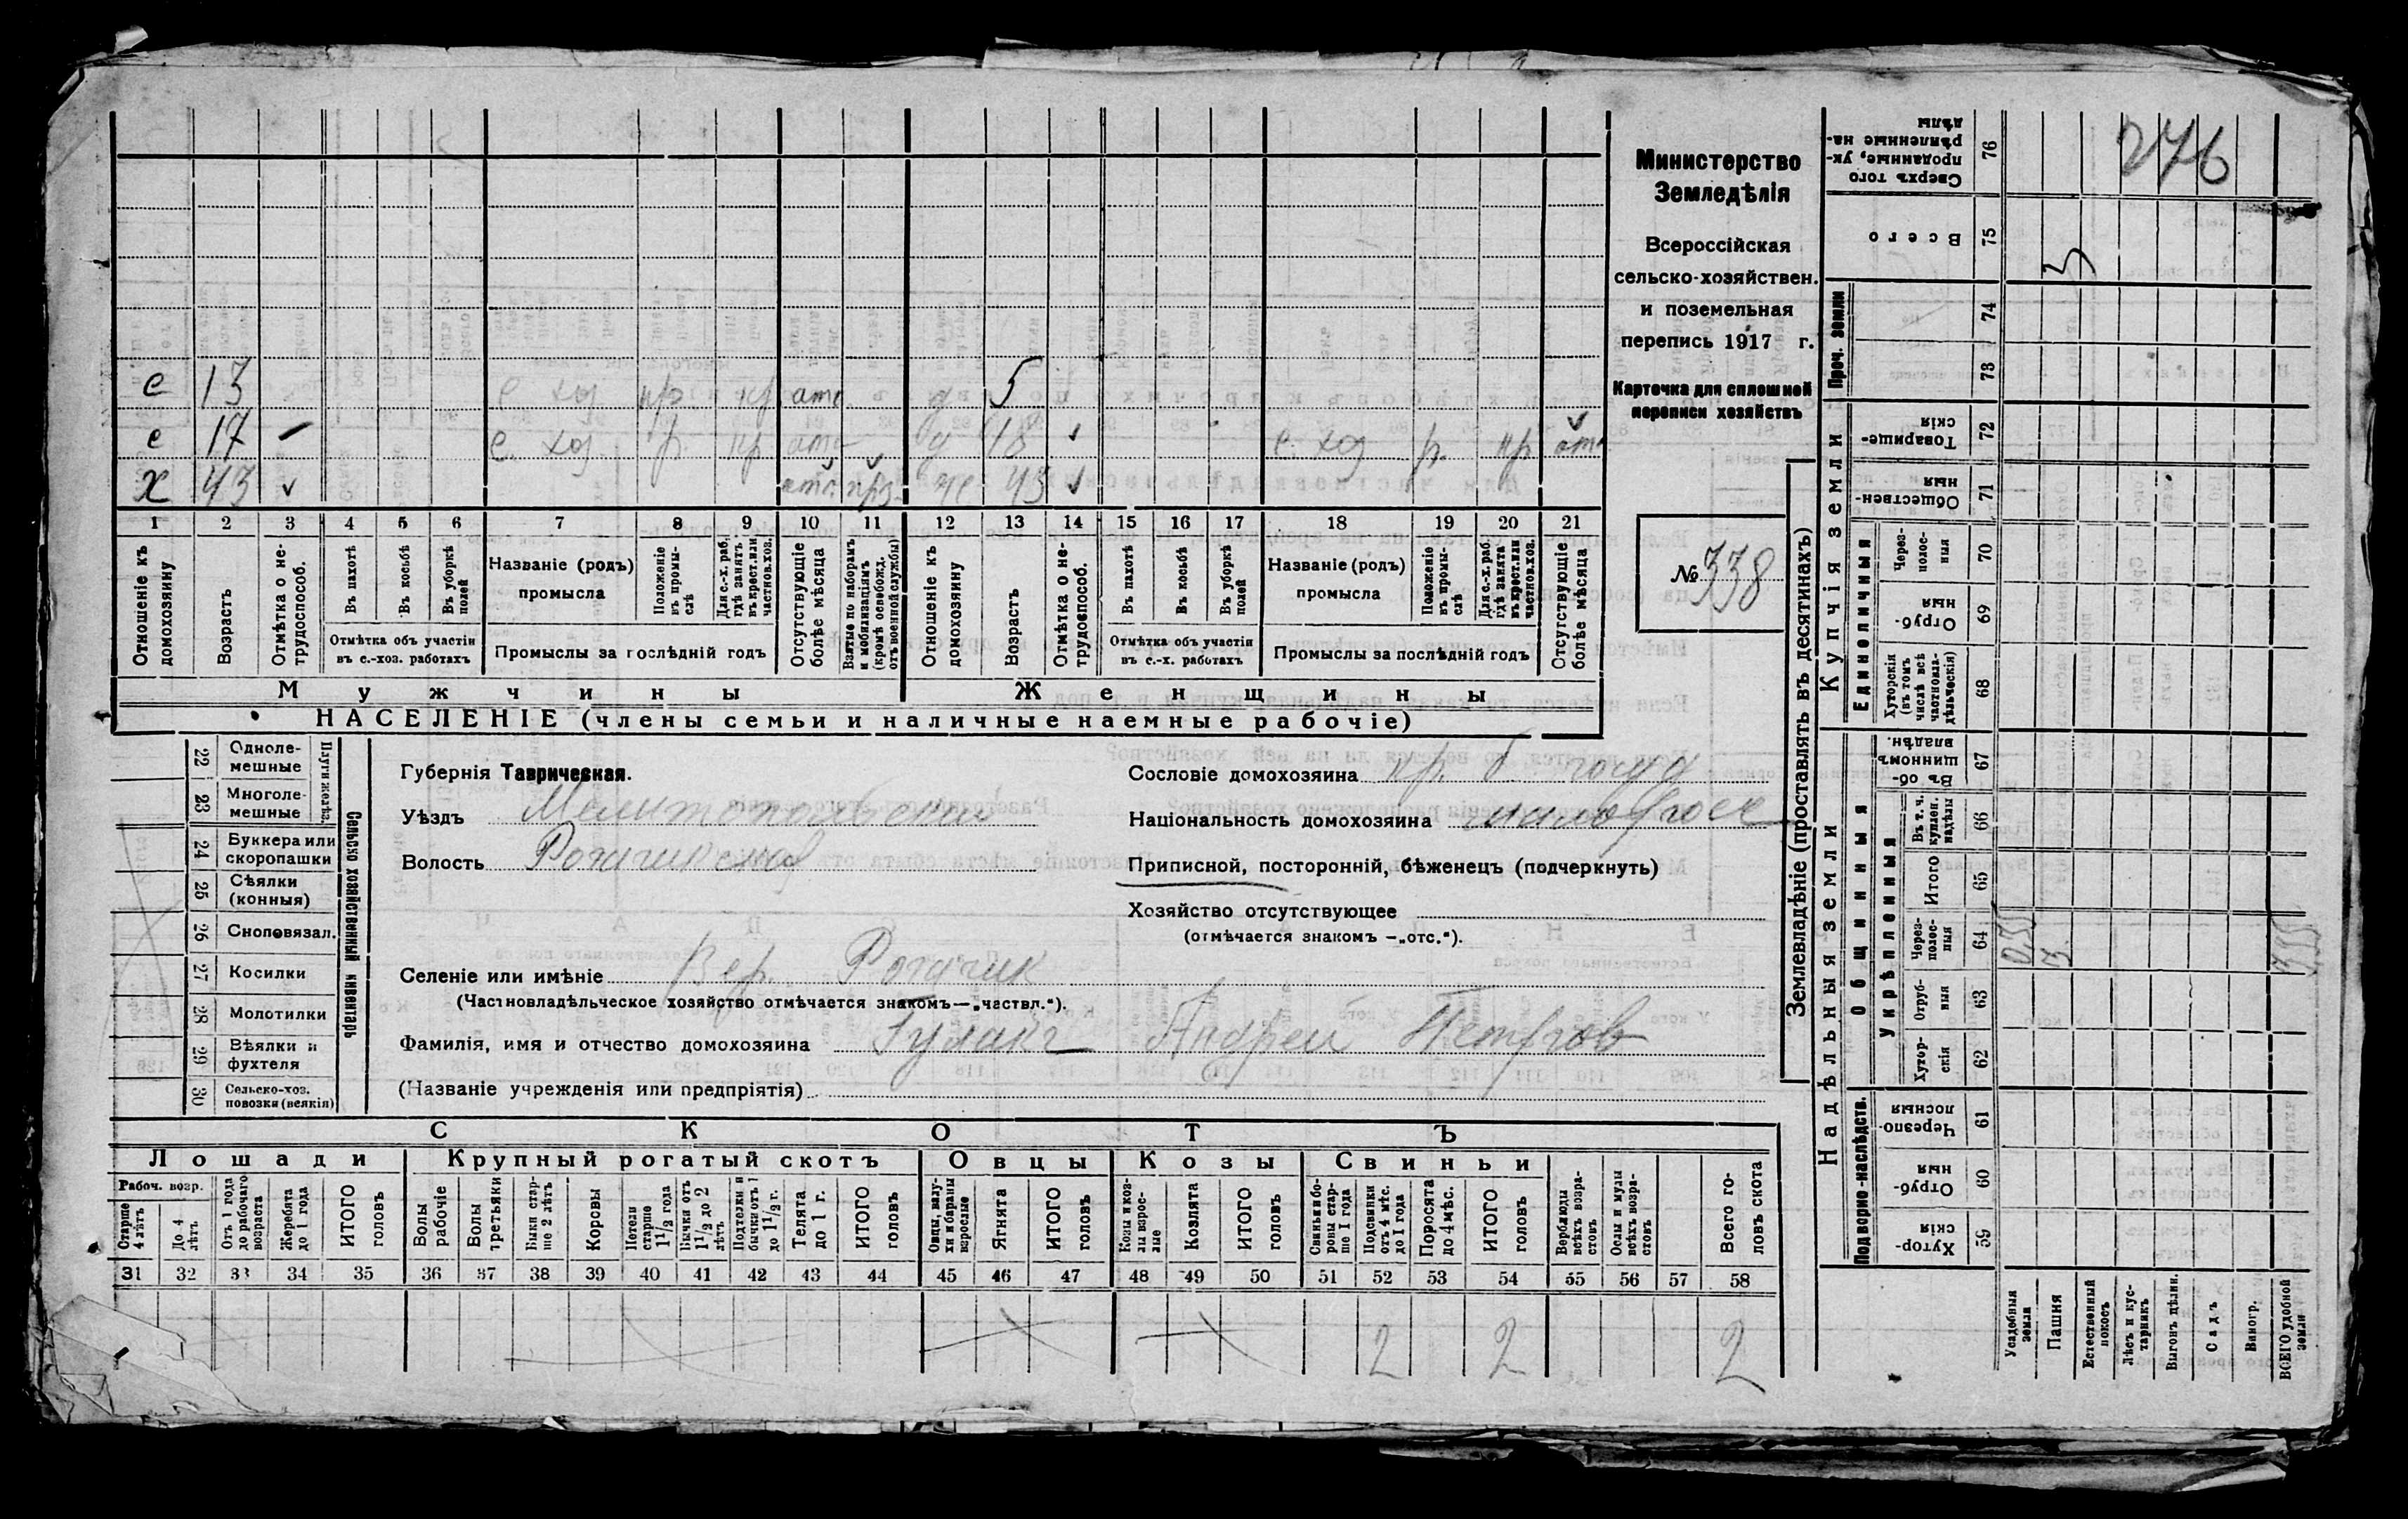 276
Министерство
Земледѣлія
Всероссійская
сельско-хозяйствен.
и поземельная
перепись 1917 г.
Карточка для сплошной
переписи хозяйствъ
№ 338
е 13 с. хоз кр отс. д 5
е 17 с. хоз. р. кр отс д 18 с. хоз р. кр отс
х 43 отс. же 43
1 2 3 4 5 6 7 8 9 10 11 12 13 14 15 16 17 18 19 20 21
Отношеніе къ домохозяину
Возрастъ
Отмѣтка о не-трудоспособ.
Въ пахотѣ
Въ косьбѣ
Въ уборкѣ полей
Отмѣтка объ участіи
въ с.-хоз. работахъ
Названіе (родъ)
промысла
Положеніе въ промы-слѣ
Для с.-х. раб, гдѣ занятъ въ крест. или частнов. хоз.
Промыслы за послѣдній годъ
Отсутствующіе болѣе мѣсяца
Взятые по наборамъ и мобилизаціямъ (кромѣ освобожд. отъ военной службы)
Отношеніе къ домохозяину
Возрастъ
Отмѣтка о не-трудоспособ.
Въ пахотѣ
Въ косьбѣ
Въ уборкѣ полей
Отмѣтка объ участіи
въ с.-х. работахъ
Названіе (родъ)
промысла
Положеніе въ промы-слѣ
Для с.-х. раб гдѣ занята въ крест. или частнов. хоз.
Промыслы за послѣдній годъ
Отсутствующіе болѣе мѣсяца
Мужчины Женщины
НАСЕЛЕНІЕ (члены семьи и наличные наемные рабочіе)
22 Одноле-мешные
23 Многоле-мешные
Плуги желѣз.
24 Буккера или скоропашки
25 Сѣялки (конныя)
26 Сноповязал.
27 Косилки
28 Молотилки
29 Вѣялки и фухтеля
30 Сельско-хоз. повозки (всякія)
Сельско хозяйственный инвентарь
Губернія Таврическая.
Уѣздъ Мелитопольский
Волость Рогачикская
Сословіе домохозяина кр. б. госуд
Національность домохозяина малоросс
Приписной, посторонній, бѣженецъ (подчеркнуть)
Хозяйство отсутствующее
(отмѣчается знакомъ —„отс.“).
Селеніе или имѣніе Вер. Рогачик
(Частновладѣльческое хозяйство отмѣчается знакомъ—„частвл.“).
Фамилія, имя и отчество домохозяина Гулакъ Андрей Петров
(Названіе учрежденія или предпріятія)
СКОТЪ
Лошади Крупный рогатый скотъ Овцы Козы Свиньи
Рабоч. возр.
Старше 4 лѣтъ
До 4 лѣтъ
Отъ 1 года до рабочаго возраста
Жеребята до 1 года
ИТОГО головъ
Волы рабочіе
Волы третьяки
Быки стар-ше 2 лѣтъ
Коровы
Нетели старше 1 1/2 года
Бычки отъ 1 1/2 до 2 лѣтъ
Подтелки и бычки отъ 1 до 1 1/2 г.
Телята до 1 г.
ИТОГО головъ
Овцы, валу-хи и бараны взрослые
Ягнята
ИТОГО головъ
Козы и коз-лы взрос-лые
Козлята
ИТОГО головъ
Свиньи и бо-ровы стар-ше 1 года
Подсвинки отъ 4 мѣс. до 1 года
Поросята до 4 мѣс.
ИТОГО головъ
Верблюды всѣхъ возра-стовъ
Ослы и мулы всѣхъ возра-стовъ
Всего го-ловъ скота
31 32 33 34 35 36 37 38 39 40 41 42 43 44 45 46 47 48 49 50 51 52 53 54 55 56 57 58
2 2 2
Землевладѣніе (проставлять въ десятинахъ)
Надѣльныя земли Купчія земли Проч. земли
Подворно-наслѣдств.
Общинныя
Укрѣпленныя
Единоличныя
Сверхъ того проданные, ук-рѣпленные на-дѣлы 76
Всего 75 3
74
73
Товарище-скія 72
Обществен-ныя 71
Через-полос-ныя 70
Отруб-ныя 69
Хуторскія (въ томъ числѣ всѣ частновла-дѣльческія) 68
Въ об-щинномъ владѣн. 67
Въ т. ч. куплен. надѣлы 66
Итого 65
Через-полос-ныя 64 3
Отруб-ныя 63
Хутор-скія 62
Черезпо-лосныя 61
Отруб-ныя 60
Хутор-скія 59
Усадебныя земля
Пашня
Естественный покосъ
Лѣсъ и кус-тарникъ
Выгонъ цѣлин.
Садъ
Виногр.
ВСЕГО удобной земли